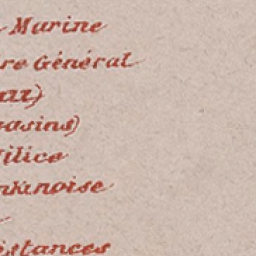 Marine
re Général
asins)
ilice
nkinoise
istances